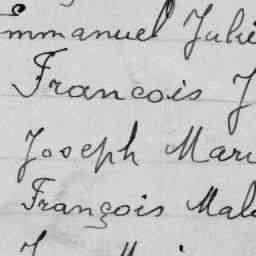 Emmanuel Julie
Francois J
Joseph Mari
François Mal